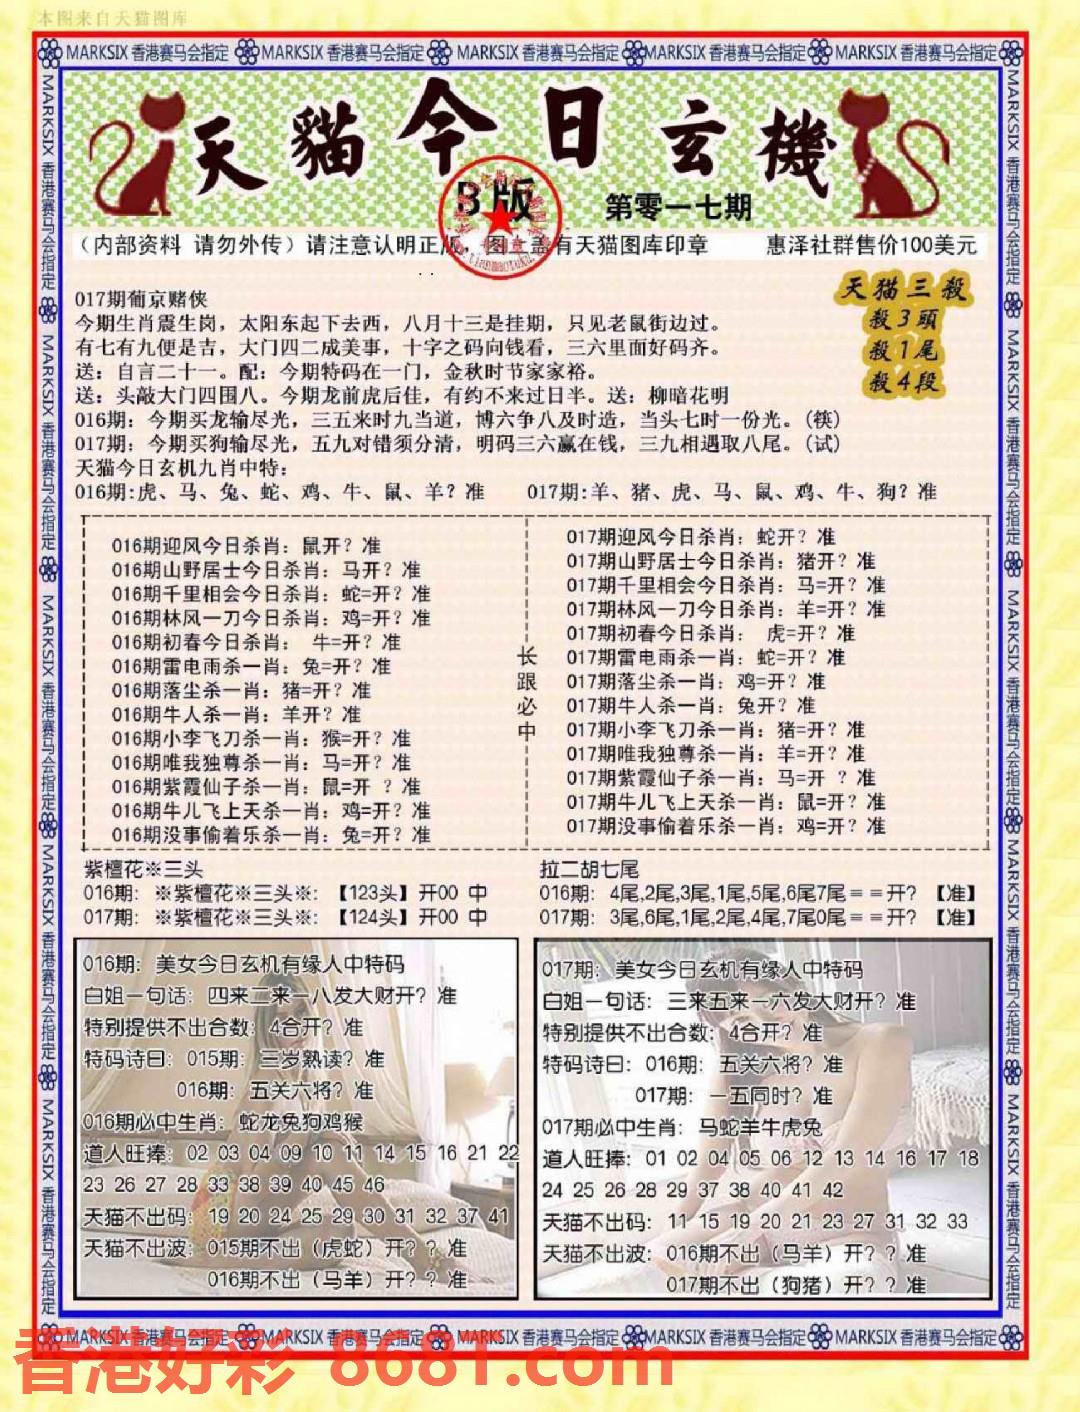 本图来自天猫图库
MARKSIX 香港赛马会指定 MARKSIX 香港赛马会指定 MARKSIX 香港赛马会指定 MARKSIX 香港赛马会指定 MARKSIX 香港赛马会指定
天貓今日玄機
B版
第零一七期
（内部资料 请勿外传）请注意认明正版，图上盖有天猫图库印章 惠泽社群售价100美元
天猫三殺
殺3頭
殺1尾
殺4段
017期葡京赌侠
今期生肖震生岗，太阳东起下去西，八月十三是挂期，只见老鼠街边过。
有七有九便是吉，大门四二成美事，十字之码向钱看，三六里面好码齐。
送：自言二十一。配：今期特码在一门，金秋时节家家裕。
送：头敲大门四围八。今期龙前虎后佳，有约不来过日半。送：柳暗花明
016期：今期买龙输尽光，三五来时九当道，博六争八及时造，当头七时一份光。(筷)
017期：今期买狗输尽光，五九对错须分清，明码三六赢在钱，三九相遇取八尾。(试)
天猫今日玄机九肖中特：
016期:虎、马、兔、蛇、鸡、牛、鼠、羊？准 017期:羊、猪、虎、马、鼠、鸡、牛、狗？准
016期迎风今日杀肖：鼠开？准
016期山野居士今日杀肖：马开？准
016期千里相会今日杀肖：蛇=开？准
016期林风一刀今日杀肖：鸡=开？准
016期初春今日杀肖： 牛=开？准
016期雷电雨杀一肖：兔=开？准
016期落尘杀一肖：猪=开？准
016期牛人杀一肖：羊开？准
016期小李飞刀杀一肖：猴=开？准
016期唯我独尊杀一肖：马=开？准
016期紫霞仙子杀一肖：鼠=开 ？准
016期牛儿飞上天杀一肖：鸡=开？准
016期没事偷着乐杀一肖：兔=开？准
长跟必中
017期迎风今日杀肖：蛇开？准
017期山野居士今日杀肖：猪开？准
017期千里相会今日杀肖：马=开？准
017期林风一刀今日杀肖：羊=开？准
017期初春今日杀肖： 虎=开？准
017期雷电雨杀一肖：蛇=开？准
017期落尘杀一肖：鸡=开？准
017期牛人杀一肖：兔开？准
017期小李飞刀杀一肖：猪=开？准
017期唯我独尊杀一肖：羊=开？准
017期紫霞仙子杀一肖：马=开 ？准
017期牛儿飞上天杀一肖：鼠=开？准
017期没事偷着乐杀一肖：鸡=开？准
紫檀花※三头
016期：※紫檀花※三头※：【123头】开00 中
017期：※紫檀花※三头※：【124头】开00 中
拉二胡七尾
016期：4尾,2尾,3尾,1尾,5尾,6尾7尾＝＝开？【准】
017期：3尾,6尾,1尾,2尾,4尾,7尾0尾＝＝开？【准】
016期：美女今日玄机有缘人中特码
白姐一句话：四来二来一八发大财开？准
特别提供不出合数：4合开？准
特码诗曰：015期：三岁熟读？准
016期：五关六将？准
016期必中生肖：蛇龙兔狗鸡猴
道人旺捧：02 03 04 09 10 11 14 15 16 21 22
23 26 27 28 33 38 39 40 45 46
天猫不出码：19 20 24 25 29 30 31 32 37 41
天猫不出波：015期不出（虎蛇）开？？准
016期不出（马羊）开？？准
017期：美女今日玄机有缘人中特码
白姐一句话：三来五来一六发大财开？准
特别提供不出合数：4合开？准
特码诗曰：016期：五关六将？准
017期：一五同时？准
017期必中生肖：马蛇羊牛虎兔
道人旺捧：01 02 04 05 06 12 13 14 16 17 18
24 25 26 28 29 37 38 40 41 42
天猫不出码：11 15 19 20 21 23 27 31 32 33
天猫不出波：016期不出（马羊）开？？准
017期不出（狗猪）开？？准
MARKSIX 香港赛马会指定 MARKSIX 香港赛马会指定 MARKSIX 香港赛马会指定 MARKSIX 香港赛马会指定 MARKSIX 香港赛马会指定
香港好彩 8681.com